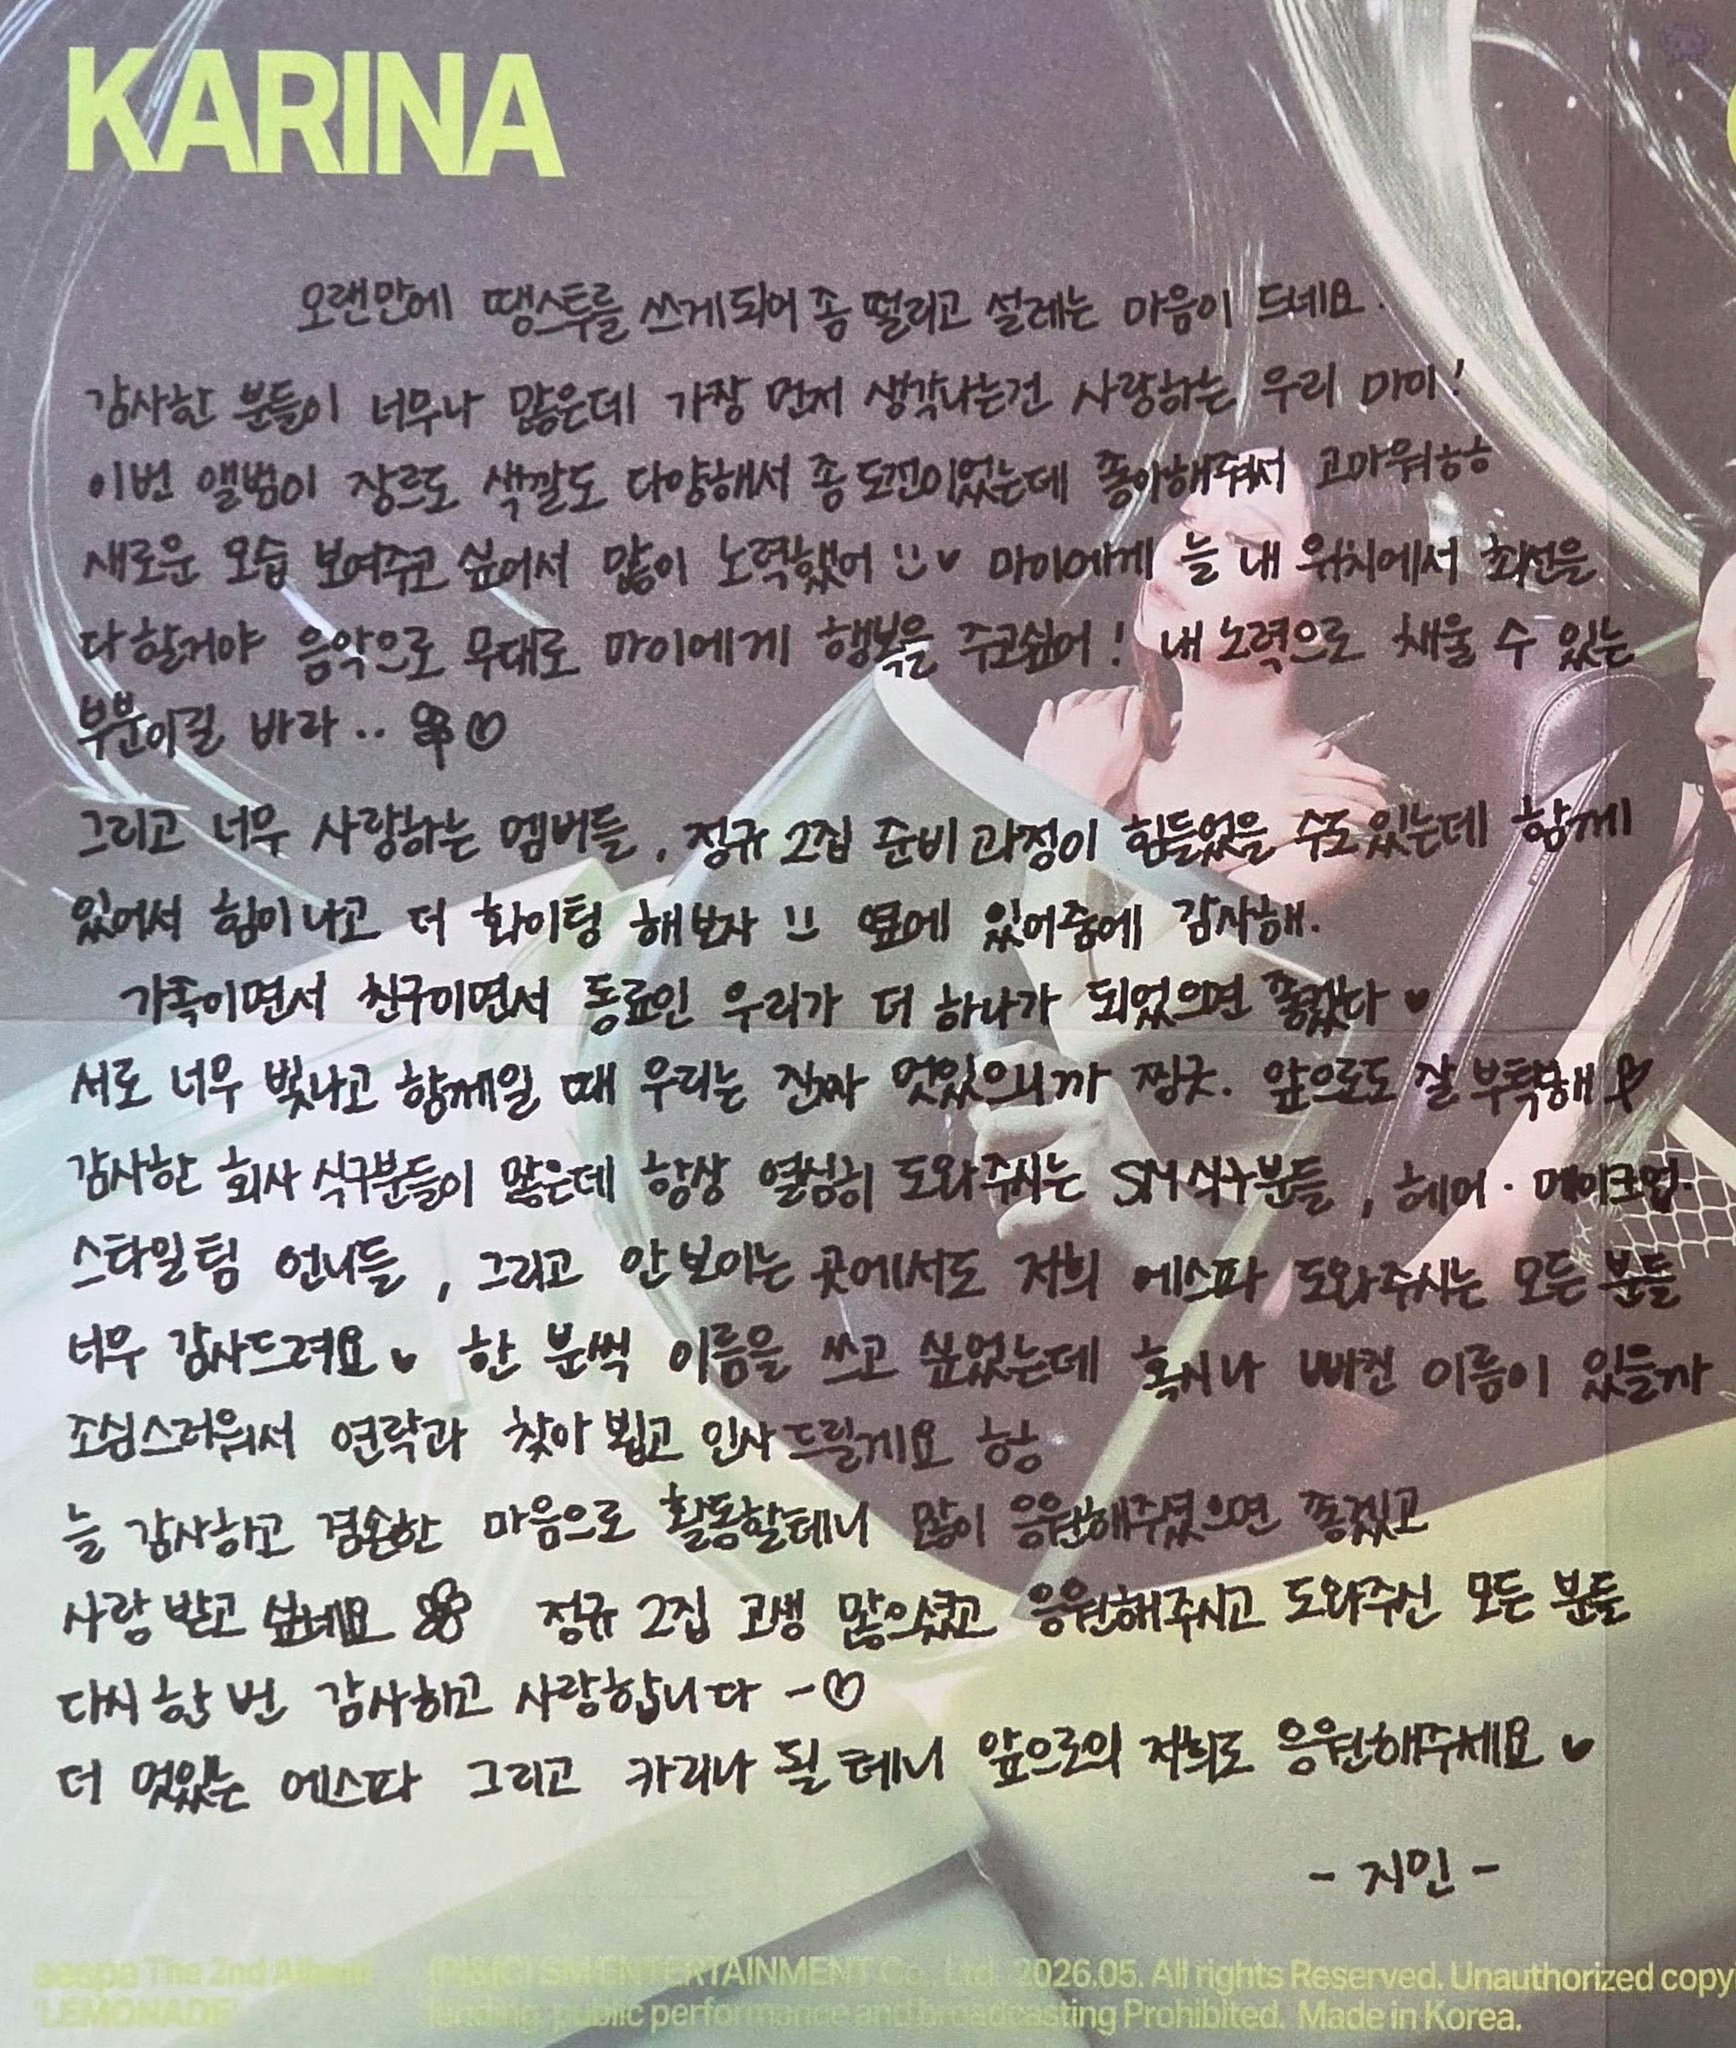 KARINA
오랜만에 땡스투를 쓰게되어 좀 떨리고 설레는 마음이 드네요.
감사한 분들이 너무나 많은데 가장 먼저 생각나는건 사랑하는 우리 마이!
이번 앨범이 장르도 색깔도 다양해서 좀 도전이었는데 좋아해줘서 고마워ㅎㅎ
새로운 모습 보여주고 싶어서 많이 노력했어 !! ♥ 마이에게 늘 내 위치에서 최선을
다할거야 음악으로 무대로 마이에게 행복을 주고싶어! 내 노력으로 채울 수 있는
부분이길 바라.. ♡
그리고 너무 사랑하는 멤버들, 정규 2집 준비 과정이 힘들었을 수도 있는데 함께
있어서 힘이 나고 더 화이팅 해보자 !! 옆에 있어줌에 감사해.
가족이면서 친구이면서 동료인 우리가 더 하나가 되었으면 좋겠다 ♥
서로 너무 빛나고 함께일 때 우리는 진짜 멋있으니까 찡긋. 앞으로도 잘 부탁해
감사한 회사 식구분들이 많은데 항상 열심히 도와주시는 SM식구분들, 헤어·메이크업·
스타일팀 언니들, 그리고 안 보이는 곳에서도 저희 에스파 도와주시는 모든 분들
너무 감사드려요 ♥ 한 분씩 이름을 쓰고 싶었는데 혹시나 빠진 이름이 있을까
조심스러워서 연락과 찾아 뵙고 인사드릴게요 항항
늘 감사하고 겸손한 마음으로 활동할테니 많이 응원해주셨으면 좋겠고
사랑 받고 싶네요 정규 2집 고생 많으셨고 응원해주시고 도와주신 모든 분들
다시 한 번 감사하고 사랑합니다 -♡
더 멋있는 에스파 그리고 카리나 될테니 앞으로의 저희도 응원해주세요 ♥
- 지민 -
aespa The 2nd Album
'LEMONADE'
(P)&(C) SM ENTERTAINMENT Co., Ltd. 2026.05. All rights Reserved. Unauthorized copy
lending, public performance and broadcasting Prohibited. Made in Korea.